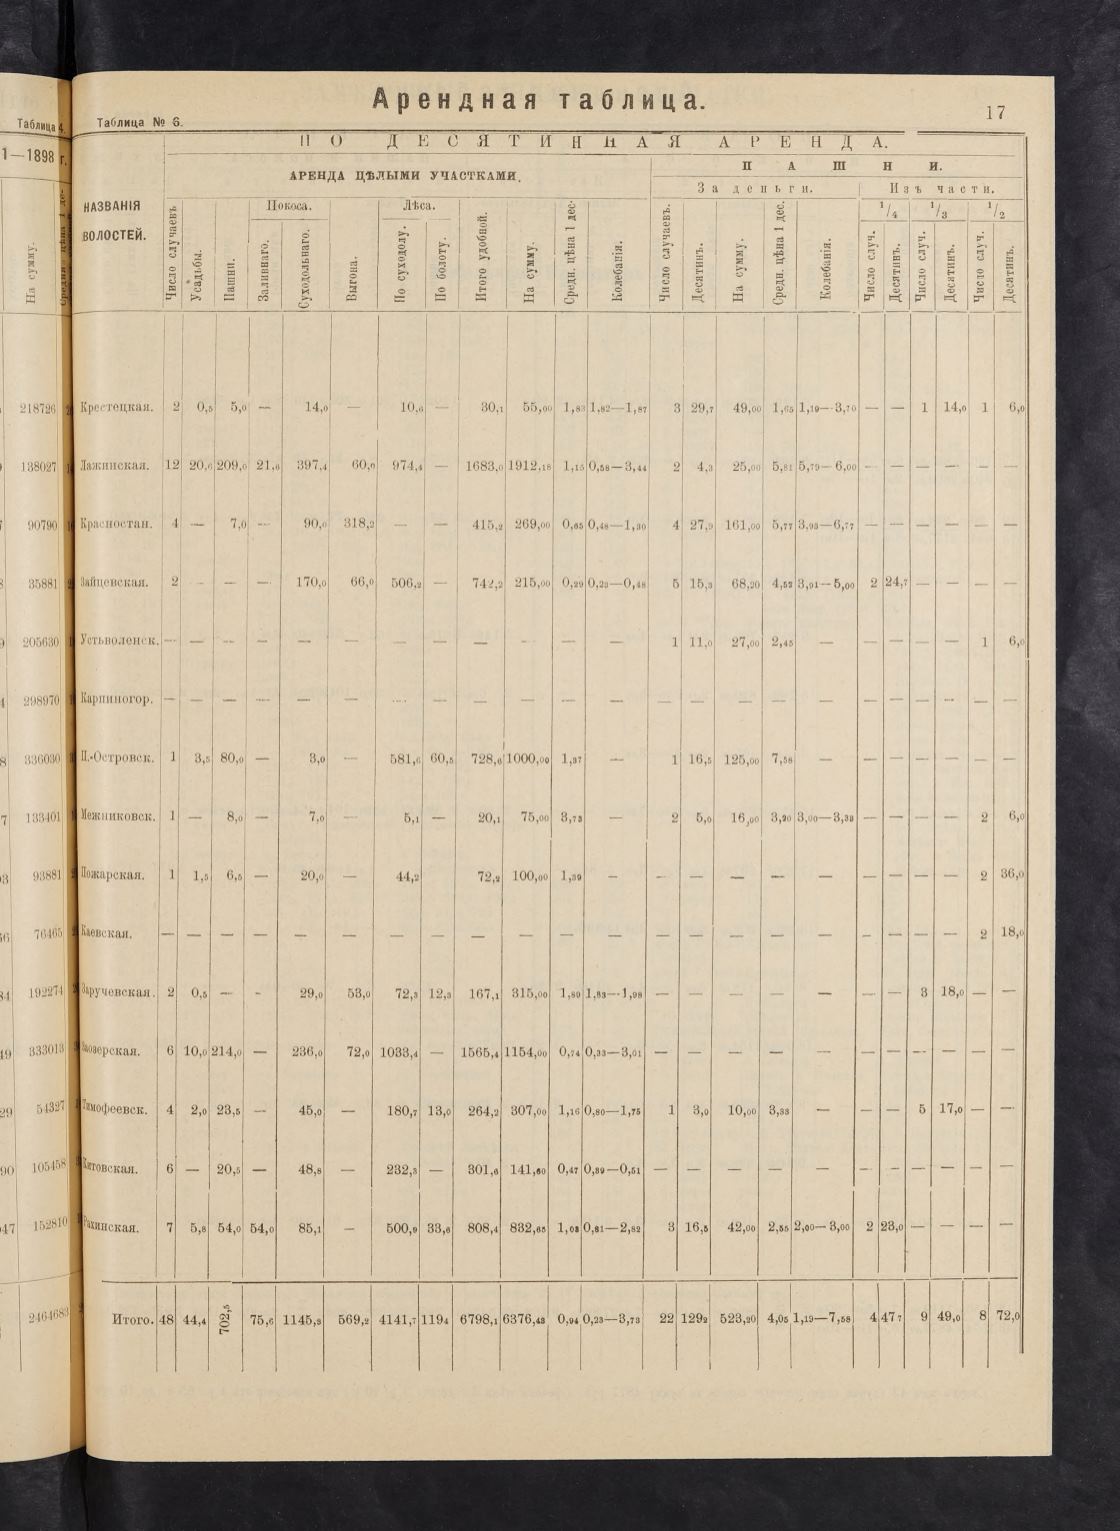 Арендная таблица.
17
Таблица 4.
Таблица № 6.
1—1898 г.
ПОДЕСЯТИННАЯ АРЕНДА.
НАЗВАНІЯ ВОЛОСТЕЙ.
АРЕНДА ЦѢЛЫМИ УЧАСТКАМИ.
ПАШНИ.
За деньги.
Изъ части.
Покоса.
Лѣса.
1/4 1/3 1/2
На сумму.
Число случаевъ Усадьбы. Пашни. Заливнаго. Суходольнаго. Выгона. По суходолу. По болоту. Итого удобной. На сумму. Средн. цѣна 1 дес. Колебанія. Число случаевъ. Десятинъ. На сумму. Средн. цѣна 1 дес. Колебанія. Число случ. Десятинъ. Число случ. Десятинъ. Число случ. Десятинъ.
218726 Крестецкая. 2 0,5 5,0 — 14,0 — 10,6 — 30,1 55,00 1,83 1,82—1,87 3 29,7 49,00 1,65 1,19—3,70 — — 1 14,0 1 6,0
138027 Лажинская. 12 20,6 209,0 21,6 397,4 60,0 974,4 — 1683,0 1912,18 1,15 0,58—3,44 2 4,3 25,00 5,81 5,79—6,00 — — — — — —
90790 Красностан. 4 — 7,0 — 90,0 318,2 — — 415,2 269,00 0,65 0,48—1,30 4 27,9 161,00 5,77 3,93—6,77 — — — — — —
35881 Зайцевская. 2 — — — 170,0 66,0 506,2 — 742,2 215,00 0,29 0,23—0,48 5 15,3 68,20 4,52 3,91—5,00 2 24,7 — — — —
205630 Устьволенск. — — — — — — — — — — — — 1 11,0 27,00 2,45 — — — — — 1 6,0
298970 Карпиногор. — — — — — — — — — — — — — — — — — — — — — — —
336030 П.-Островск. 1 3,5 80,0 — 3,0 — 581,6 60,5 728,6 1000,00 1,37 — 1 16,5 125,00 7,58 — — — — — — —
133401 Межниковск. 1 — 8,0 — 7,0 — 5,1 — 20,1 75,00 3,73 — 2 5,0 16,00 3,20 3,00—3,33 — — — — 2 6,0
93881 Пожарская. 1 1,5 6,5 — 20,0 — 44,2 72,2 100,00 1,39 — — — — — — — — — — 2 36,0
76465 Каевская. — — — — — — — — — — — — — — — — — — — — — 2 18,0
192274 Заручевская. 2 0,5 — - 29,0 53,0 72,3 12,3 167,1 315,00 1,89 1,83—1,98 — — — — — — — 3 18,0 — —
333013 Заозерская. 6 10,0 214,0 — 236,0 72,0 1033,4 — 1565,4 1154,00 0,74 0,33—3,01 — — — — — — — — — — —
54327 Тимофеевск. 4 2,0 23,5 — 45,0 — 180,7 13,0 264,2 307,00 1,16 0,80—1,75 1 3,0 10,00 3,33 — — — 5 17,0 — —
105458 Китовская. 6 — 20,5 — 48,8 — 232,3 — 301,6 141,60 0,47 0,39—0,51 — — — — — — — — — — —
152810 Рахинская. 7 5,8 54,0 54,0 85,1 — 500,9 33,6 808,4 832,65 1,03 0,81—2,82 3 16,5 42,00 2,55 2,00—3,00 2 23,0 — — — —
2464683 Итого. 48 44,4 702,5 75,6 1145,3 569,2 4141,7 1194 6798,1 6376,43 0,94 0,23—3,73 22 1292 523,20 4,05 1,19—7,58 4 477 9 49,0 8 72,0